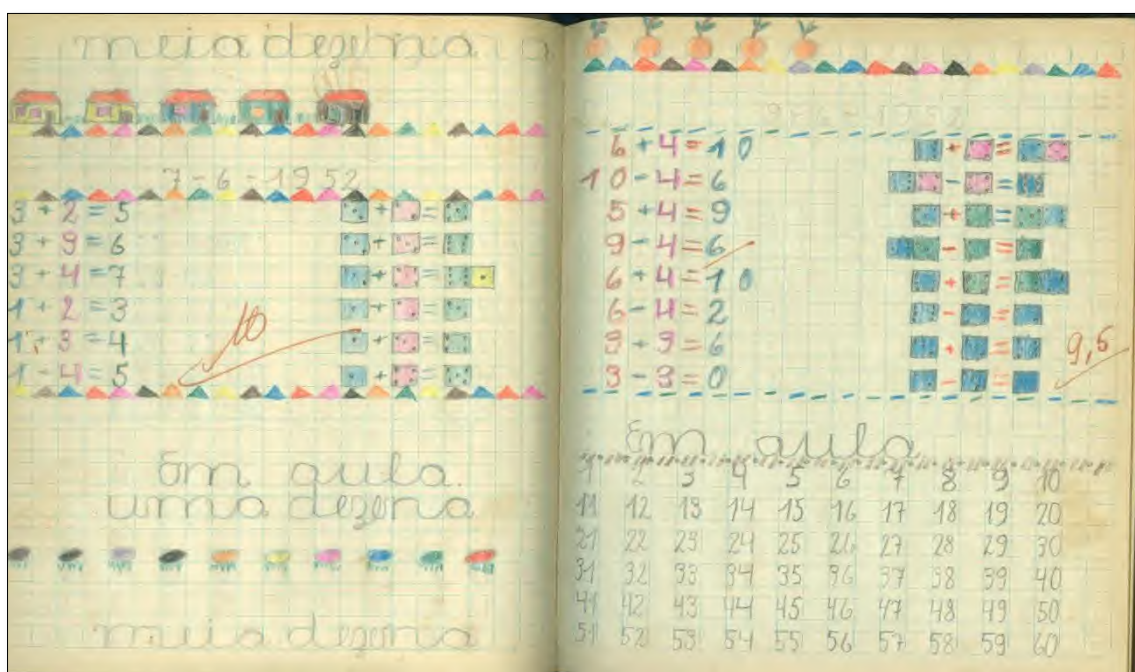 meia dezena
7-6-1952
3 + 2 = 5
3 + 3 = 6
3 + 4 = 7
1 + 2 = 3
1 + 3 = 4
1 + 4 = 5
10
Em aula.
uma dezena
meia dezena
9-6-1952
6 + 4 = 10
10 - 4 = 6
5 + 4 = 9
9 - 4 = 6
6 + 4 = 10
6 - 4 = 2
3 + 3 = 6
3 - 3 = 0
9,5
Em aula
1 2 3 4 5 6 7 8 9 10
11 12 13 14 15 16 17 18 19 20
21 22 23 24 25 26 27 28 29 30
31 32 33 34 35 36 37 38 39 40
41 42 43 44 45 46 47 48 49 50
51 52 53 54 55 56 57 58 59 60